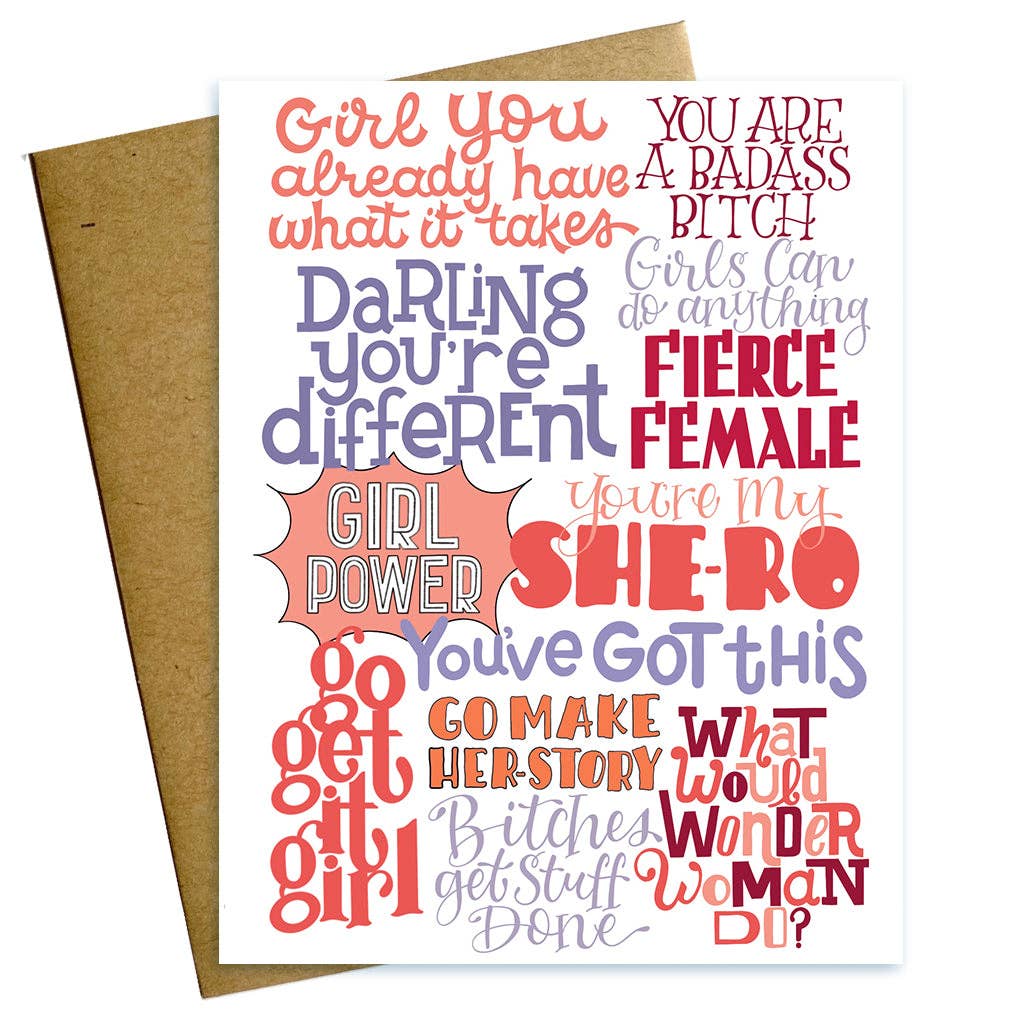 Girl you
already have
what it takes
YOU ARE
A BADASS
BITCH
Girls Can
do anything
DaRLiNg
you're
diffeREnt
FIERCE
FEMALE
GIRL
POWER
You're My
SHE-RO
You've GOT tHiS
go
get
it
girl
GO MAKE
HER-STORY
Bitches
get Stuff
Done
WhaT
Would
WoNDeR
WoMaN
DO?